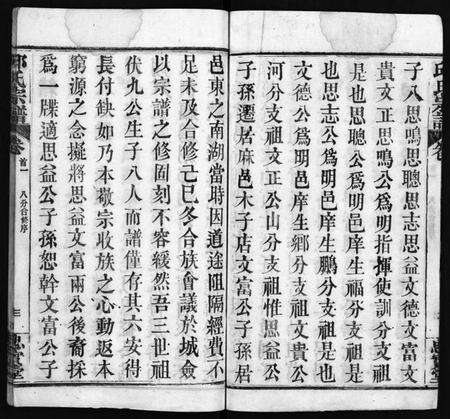 子八思鳴思聰思志思益文德文富文
貴文正思鳴公爲明指揮使訓分支祖
是也思聰公爲明邑庠生福分支祖是
也思志公爲明邑庠生鵬分支祖是也
文德公爲明邑庠生鄉分支祖文貴公
河分支祖文正公山分支祖惟思益公
子孫遷居麻邑木子店文富公子孫居
邑東之南湖當時因道途阻隔經費不
足未及合修己巳冬合族會議於城僉
以宗譜之修固刻不容緩然吾三世祖
伏九公生子八人而譜僅存其六安得
長付缺如乃本敬宗收族之心動返本
窮源之念擬將思益文富兩公後裔採
爲一牒適思益公子孫恕幹文富公子
氏宗譜 卷首一 八分合修序 三